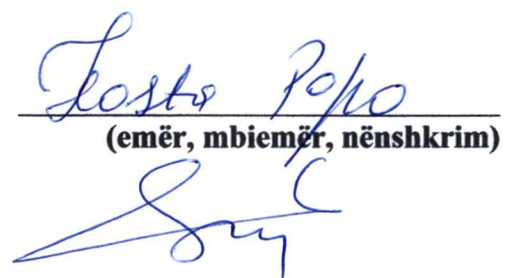 Kosta Popo
(emër, mbiemër, nënshkrim)